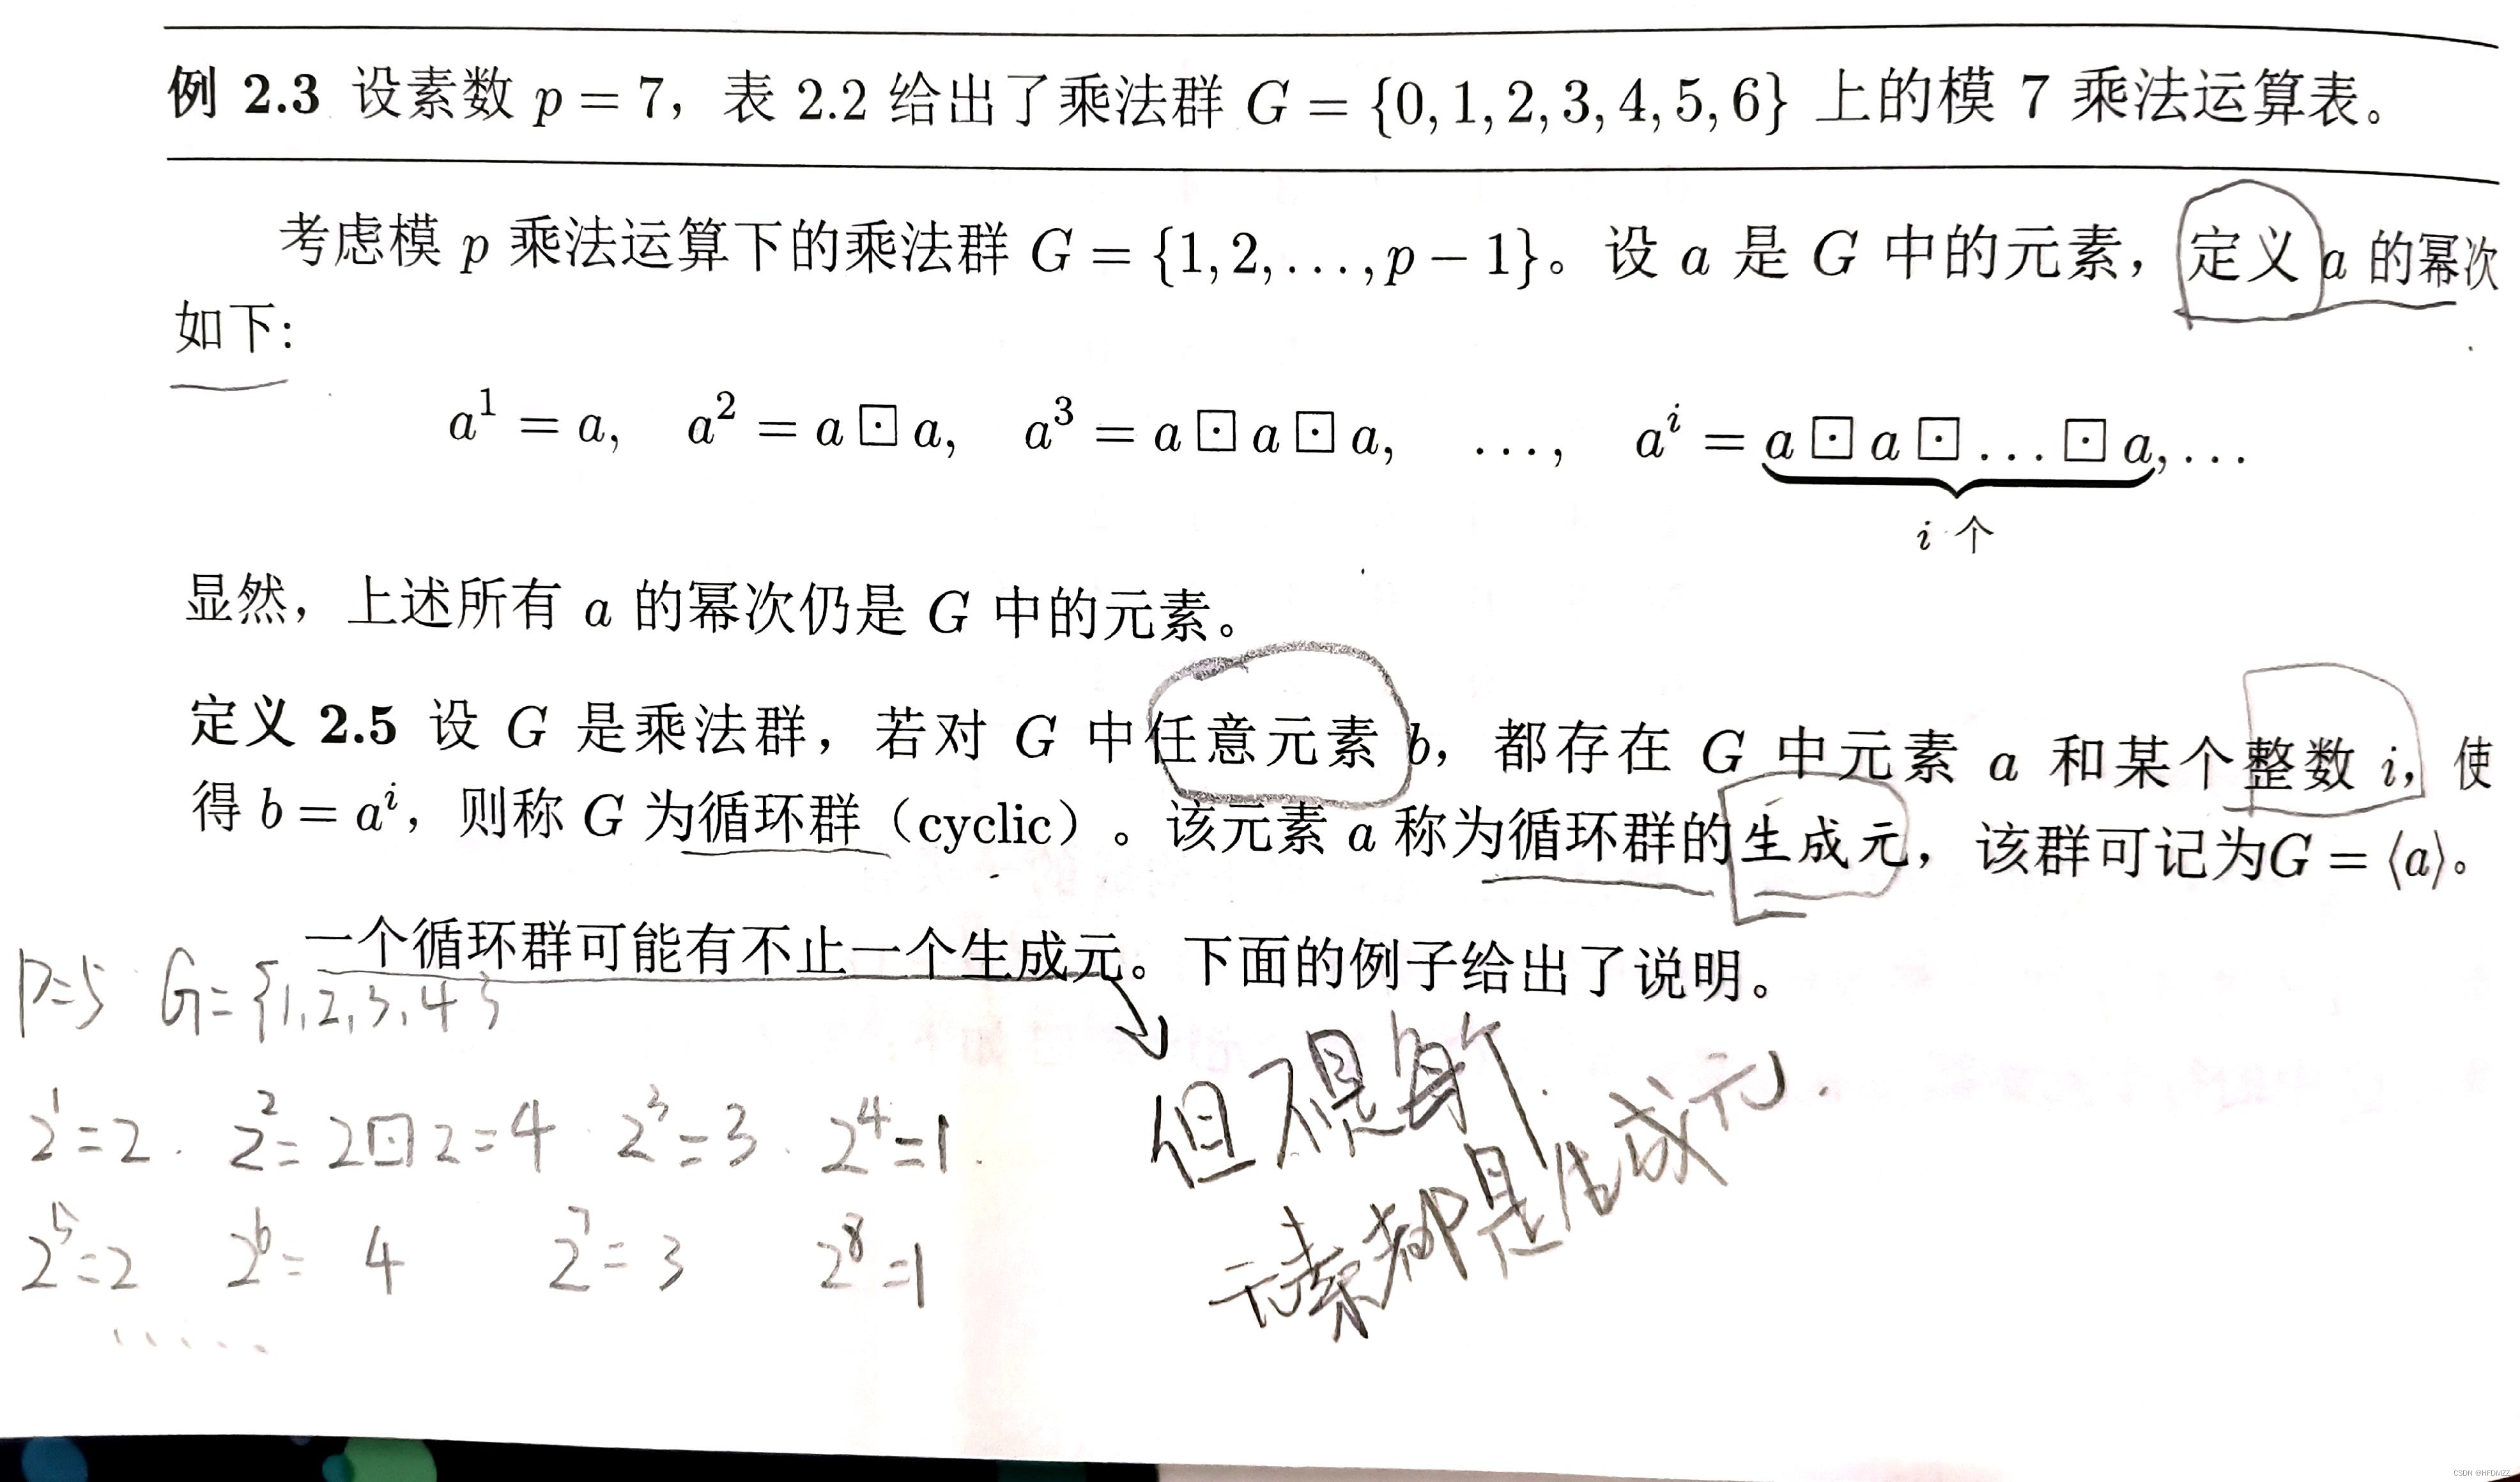 例 2.3 设素数 p = 7，表 2.2 给出了乘法群 G = {0, 1, 2, 3, 4, 5, 6} 上的模 7 乘法运算表。
考虑模 p 乘法运算下的乘法群 G = {1, 2, ..., p − 1}。设 a 是 G 中的元素，定义 a 的幂次
如下：
a¹ = a, a² = a ⊡ a, a³ = a ⊡ a ⊡ a, ..., aⁱ = a ⊡ a ⊡ ... ⊡ a, ...
i 个
显然，上述所有 a 的幂次仍是 G 中的元素。
定义 2.5 设 G 是乘法群，若对 G 中任意元素 b，都存在 G 中元素 a 和某个整数 i，使
得 b = aⁱ，则称 G 为循环群（cyclic）。该元素 a 称为循环群的生成元，该群可记为G = ⟨a⟩。
一个循环群可能有不止一个生成元。下面的例子给出了说明。
P=5 G={1,2,3,4}
2¹=2. 2²=2⊡2=4 2³=3. 2⁴=1.
2⁵=2 2⁶= 4 2⁷=3 2⁸=1
......
但不是每个
元素都是生成元.
CSDN @HFDMZZ